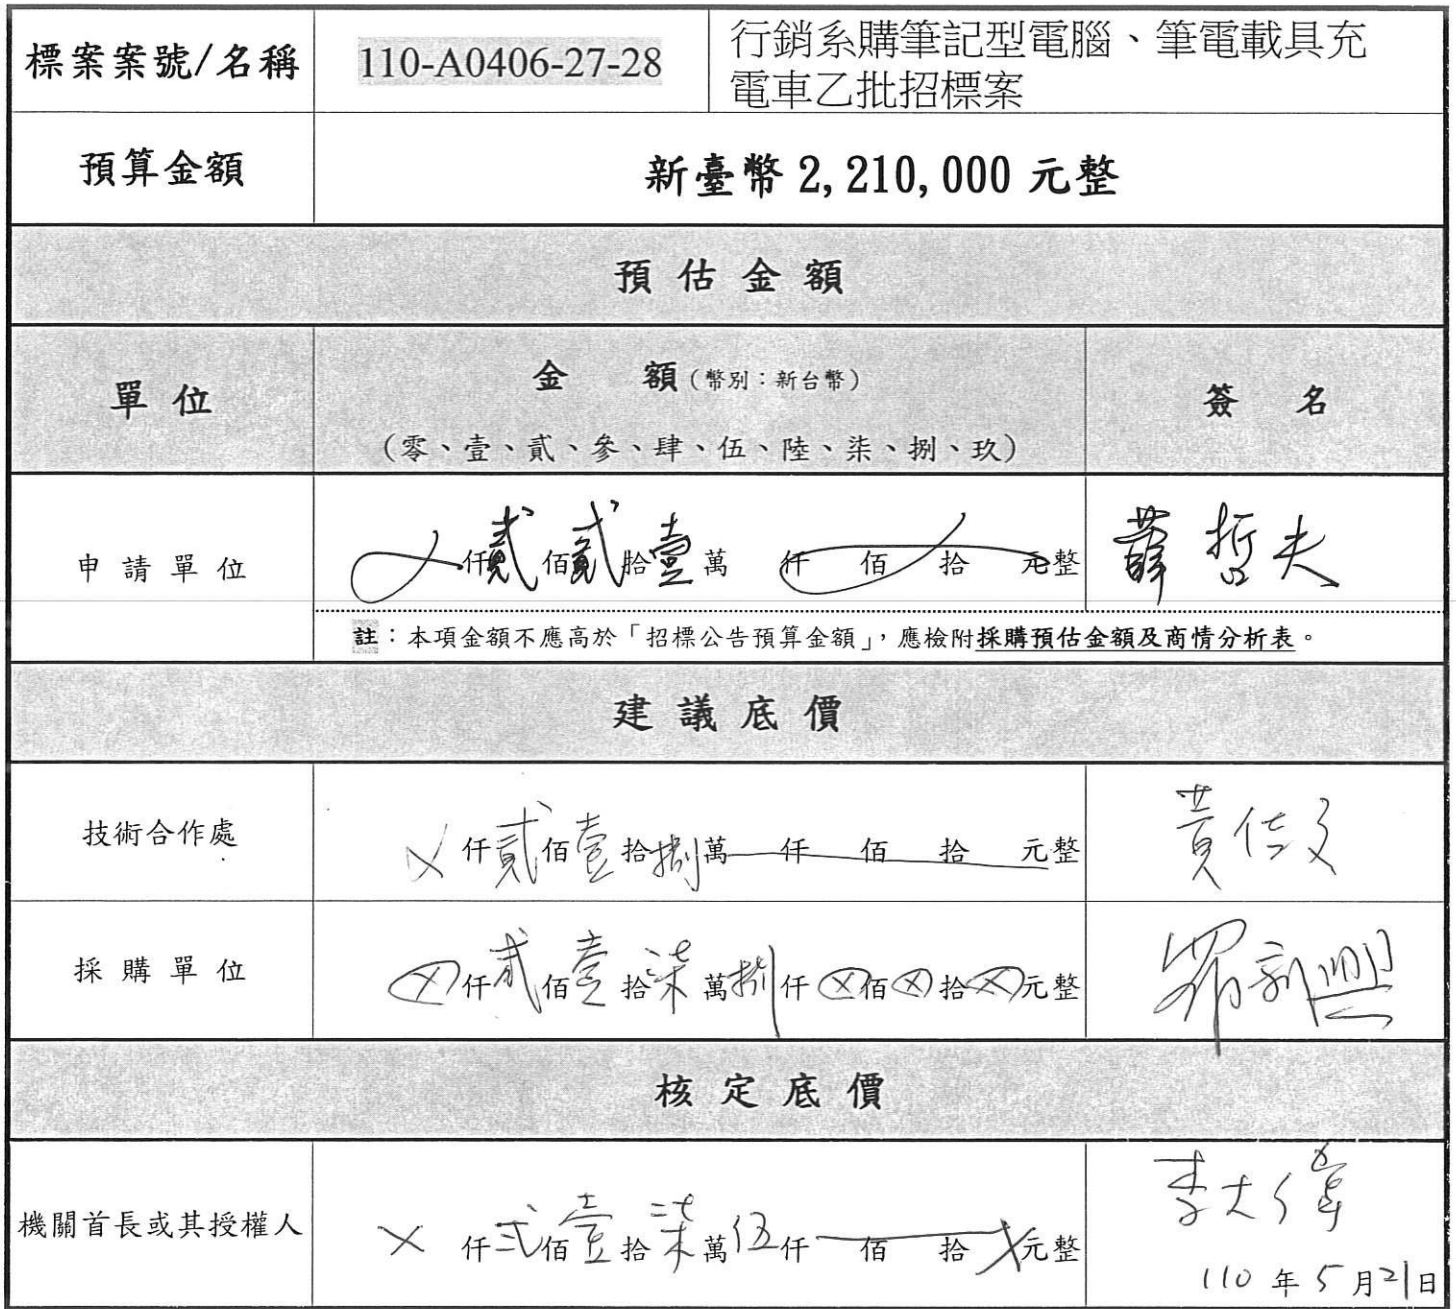 標案案號/名稱 110-A0406-27-28 行銷系購筆記型電腦、筆電載具充
電車乙批招標案
預算金額 新臺幣 2,210,000 元整
預估金額
單位 金 額(幣別:新台幣) 簽 名
(零、壹、貳、參、肆、伍、陸、柒、捌、玖)
申請單位 仟貳佰貳拾壹萬 仟 佰 拾 元整 薛哲夫
註:本項金額不應高於「招標公告預算金額」,應檢附採購預估金額及商情分析表。
建議底價
技術合作處 X仟貳佰壹拾捌萬 仟 佰 拾 元整 黃
採購單位 X仟貳佰壹拾柒萬捌仟X佰X拾X元整 羅
核定底價
機關首長或其授權人 X仟弍佰壹拾柒萬伍仟 佰 拾X元整 李大偉
110年5月21日